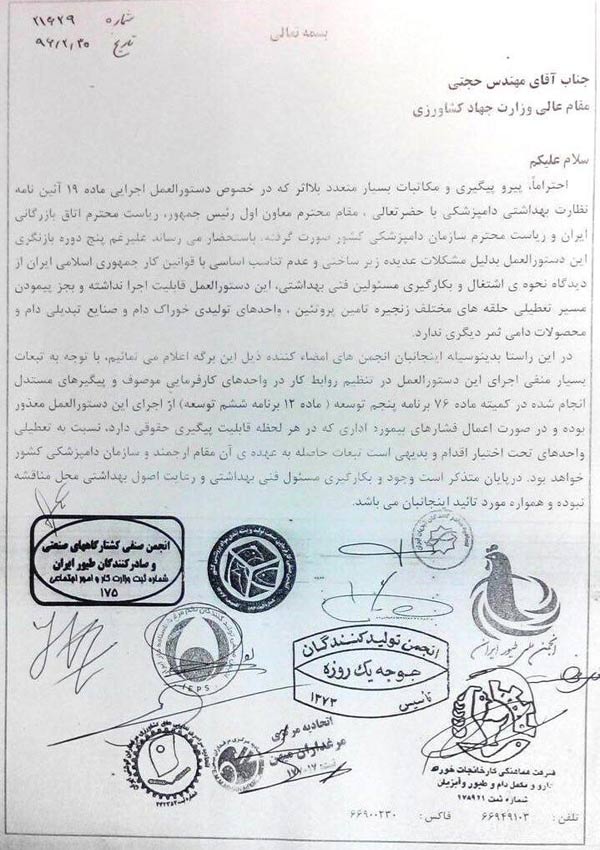 بسمه تعالی
شماره ۲۱۶۲۹
تاریخ ۹۶/۲/۳۰
جناب آقای مهندس حجتی
مقام عالی وزارت جهاد کشاورزی
سلام علیکم
احتراماً، پیرو پیگیری و مکاتبات بسیار متعدد بلااثر که در خصوص دستورالعمل اجرایی ماده ۱۹ آئین نامه
نظارت بهداشتی دامپزشکی با حضرتعالی ، مقام محترم معاون اول رئیس جمهور، ریاست محترم اتاق بازرگانی
ایران و ریاست محترم سازمان دامپزشکی کشور صورت گرفته، باستحضار می رساند علیرغم پنج دوره بازنگری
این دستورالعمل بدلیل مشکلات عدیده زیر ساختی و عدم تناسب اساسی با قوانین کار جمهوری اسلامی ایران از
دیدگاه نحوه ی اشتغال و بکارگیری مسئولین فنی بهداشتی، این دستورالعمل قابلیت اجرا نداشته و بجز پیمودن
مسیر تعطیلی حلقه های مختلف زنجیره تامین پروتئین ، واحدهای تولیدی خوراک دام و صنایع تبدیلی دام و
محصولات دامی ثمر دیگری ندارد.
در این راستا بدینوسیله اینجانبان انجمن های امضاء کننده ذیل این برگه اعلام می نمائیم، با توجه به تبعات
بسیار منفی اجرای این دستورالعمل در تنظیم روابط کار در واحدهای کارفرمایی موصوف و پیگیرهای مستدل
انجام شده در کمیته ماده ۷۶ برنامه پنجم توسعه ( ماده ۱۲ برنامه ششم توسعه) از اجرای این دستورالعمل معذور
بوده و در صورت اعمال فشارهای بیمورد اداری که در هر لحظه قابلیت پیگیری حقوقی دارد، نسبت به تعطیلی
واحدهای تحت اختیار اقدام و بدیهی است تبعات حاصله به عهده ی آن مقام ارجمند و سازمان دامپزشکی کشور
خواهد بود. درپایان متذکر است وجود و بکارگیری مسئول فنی بهداشتی و رعایت اصول بهداشتی محل مناقشه
نبوده و همواره مورد تائید اینجانبان می باشد.
انجمن صنفی کشتارگاههای صنعتی
و صادرکنندگان طیور ایران
شماره ثبت وزارت کار و امور اجتماعی
۱۷۵
انجمن ملی طیور ایران
IEPS
انجمن تولیدکنندگان
جوجه یک روزه
تأسیس ۱۳۷۲
اتحادیه مرکزی
مرغداران میهن
شرکت هماهنگی کارخانجات خوراک
دارو و مکمل دام و طیور و آبزیان
شماره ثبت ۱۷۸۹۲۱
تلفن : ۶۶۹۴۹۱۰۳ فاکس : ۶۶۹۰۰۲۳۰